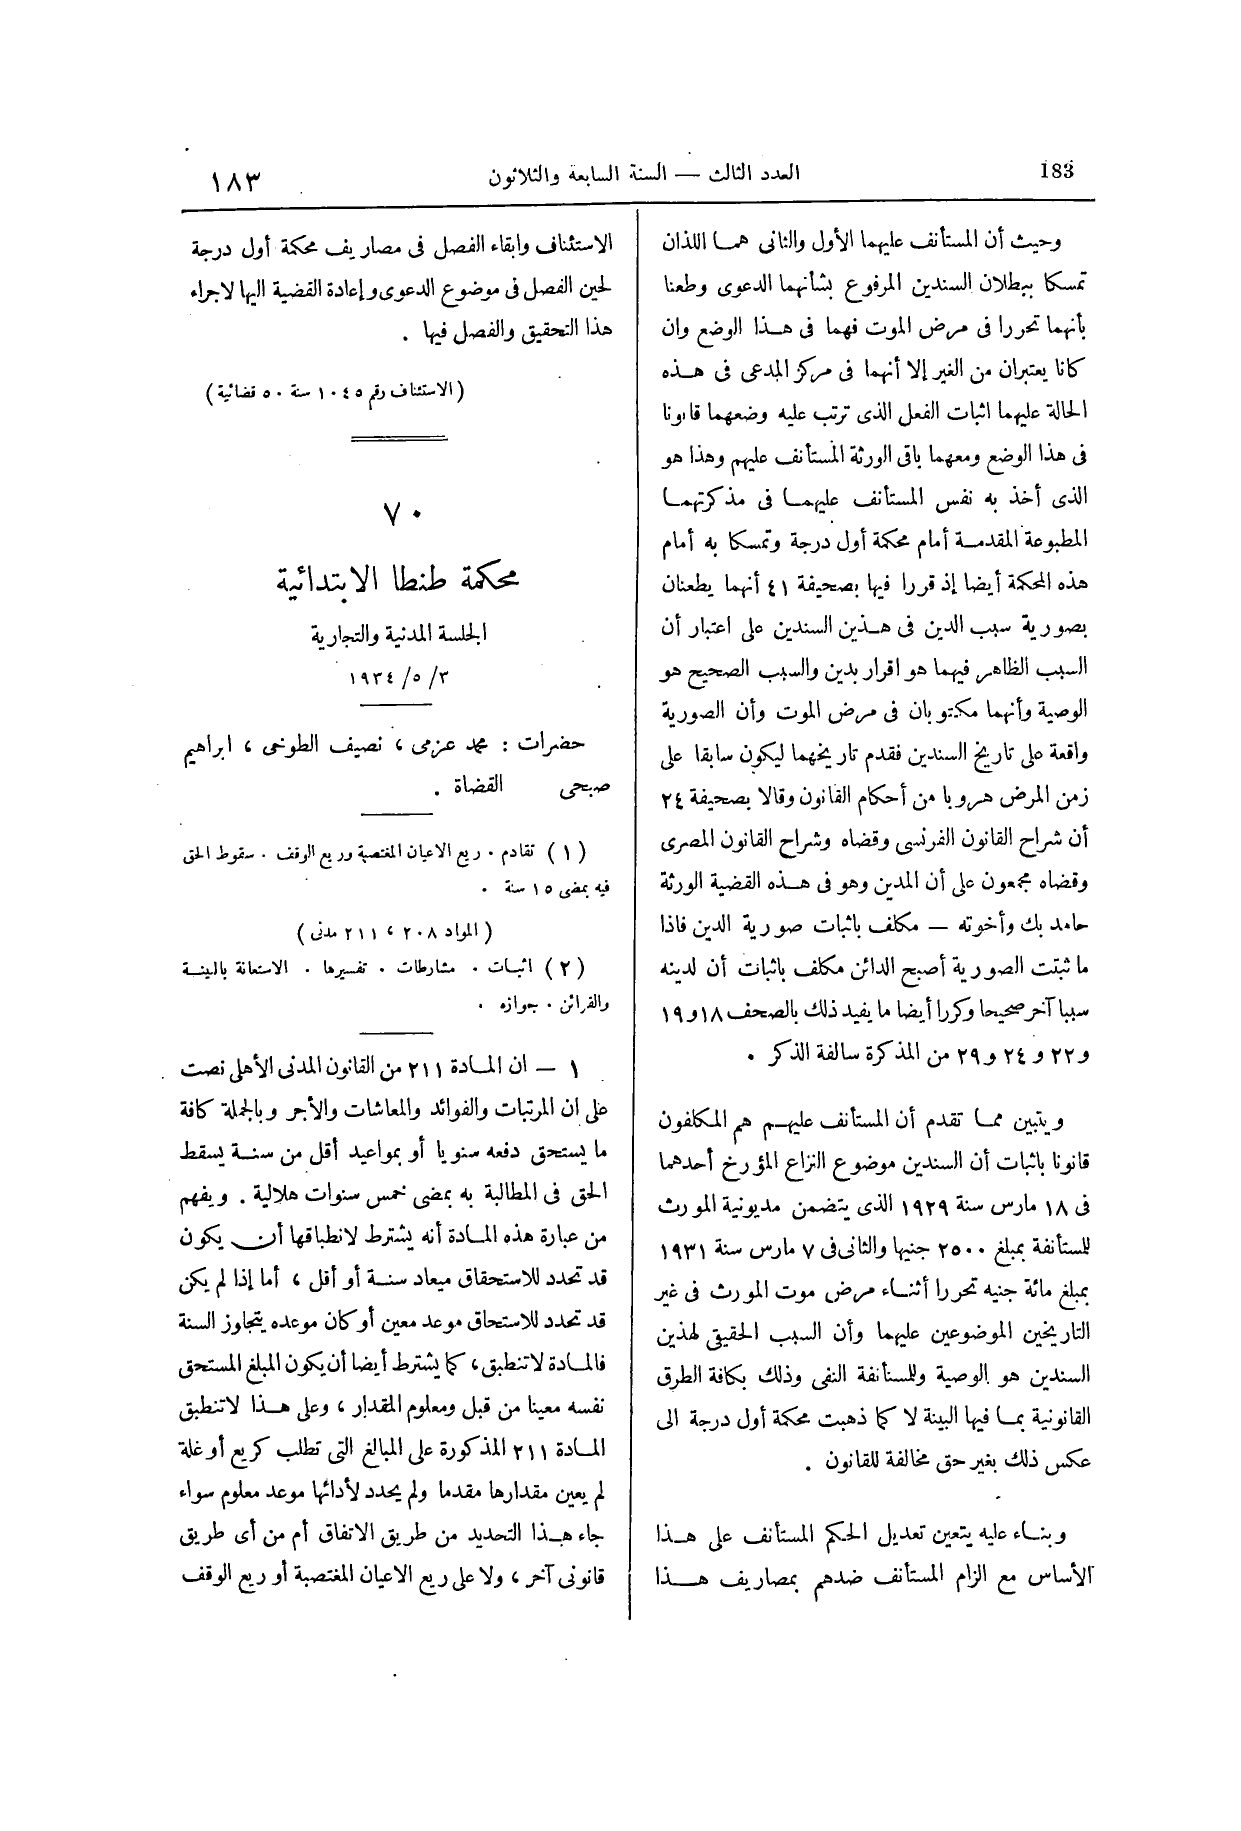 183
العدد الثالث — السنة السابعة والثلاثون
١٨٣
وحيث أن المستأنف عليهما الأول والثانى هما اللذان
تمسكا ببطلان السندين المرفوع بشأنهما الدعوى وطعنا
بأنهما تحررا فى مرض الموت فهما فى هذا الوضع وان
كانا يعتبران من الغير إلا أنهما فى مركز المدعى فى هذه
الحالة عليهما اثبات الفعل الذى ترتب عليه وضعهما قانونا
فى هذا الوضع ومعهما باقى الورثة المستأنف عليهم وهذا هو
الذى أخذ به نفس المستأنف عليهما فى مذكرتهما
المطبوعة المقدمة أمام محكمة أول درجة وتمسكا به أمام
هذه المحكمة أيضا إذ قررا فيها بصحيفة ٤١ أنهما يطعنان
بصورية سبب الدين فى هذين السندين على اعتبار أن
السبب الظاهر فيهما هو اقرار بدين والسبب الصحيح هو
الوصية وأنهما مكتوبان فى مرض الموت وأن الصورية
واقعة على تاريخ السندين فقدم تاريخهما ليكون سابقا على
زمن المرض هروبا من أحكام القانون وقالا بصحيفة ٢٤
أن شراح القانون الفرنسى وقضاه وشراح القانون المصرى
وقضاه مجمعون على أن المدين وهو فى هذه القضية الورثة
حامد بك وأخوته — مكلف باثبات صورية الدين فاذا
ما ثبتت الصورية أصبح الدائن مكلف باثبات أن لدينه
سببا آخر صحيحا وكررا أيضا ما يفيد ذلك بالصحف ١٨و١٩
و٢٢ و ٢٤ و٢٩ من المذكرة سالفة الذكر .
ويتبين مما تقدم أن المستأنف عليهم هم المكلفون
قانونا باثبات أن السندين موضوع النزاع المؤرخ أحدهما
فى ١٨ مارس سنة ١٩٢٩ الذى يتضمن مديونية المورث
للمستأنفة بمبلغ ٢٥٠٠ جنيها والثانى فى ٧ مارس سنة ١٩٣١
بمبلغ مائة جنيه تحررا أثناء مرض موت المورث فى غير
التاريخين الموضوعين عليهما وأن السبب الحقيقى لهذين
السندين هو الوصية وللمستأنفة النفى وذلك بكافة الطرق
القانونية بما فيها البينة لا كما ذهبت محكمة أول درجة الى
عكس ذلك بغير حق مخالفة للقانون .
وبناء عليه يتعين تعديل الحكم المستأنف على هذا
الأساس مع الزام المستأنف ضدهم بمصاريف هذا
الاستئناف وابقاء الفصل فى مصاريف محكمة أول درجة
لحين الفصل فى موضوع الدعوى وإعادة القضية اليها لاجراء
هذا التحقيق والفصل فيها .
(الاستئناف رقم ١٠٤٥ سنة ٥٠ قضائية)
٧٠
محكمة طنطا الابتدائية
الجلسة المدنية والتجارية
٣/ ٥/ ١٩٣٤
حضرات : محمد عزمى ، نصيف الطوخى ، ابراهيم
صبحى القضاة .
(١) تقادم . ريع الاعيان المغتصبة وريع الوقف . سقوط الحق
فيه بمضى ١٥ سنة .
(المواد ٢٠٨ ، ٢١١ مدنى)
(٢) اثبات . مشارطات . تفسيرها . الاستعانة بالبينة
والقرائن . جوازه .
١ — ان المادة ٢١١ من القانون المدنى الأهلى نصت
على ان المرتبات والفوائد والمعاشات والأجر وبالجملة كافة
ما يستحق دفعه سنويا أو بمواعيد أقل من سنة يسقط
الحق فى المطالبة به بمضى خمس سنوات هلالية . ويفهم
من عبارة هذه المادة أنه يشترط لانطباقها أن يكون
قد تحدد للاستحقاق ميعاد سنة أو أقل ، أما إذا لم يكن
قد تحدد للاستحقاق موعد معين أو كان موعده يتجاوز السنة
فالمادة لا تنطبق ، كما يشترط أيضا أن يكون المبلغ المستحق
نفسه معينا من قبل ومعلوم المقدار ، وعلى هذا لا تنطبق
المادة ٢١١ المذكورة على المبالغ التى تطلب كريع أو غلة
لم يعين مقدارها مقدما ولم يحدد لأدائها موعد معلوم سواء
جاء هذا التحديد من طريق الاتفاق أم من أى طريق
قانونى آخر ، ولا على ريع الاعيان المغتصبة أو ريع الوقف